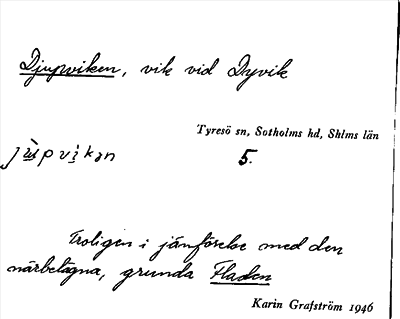 Djupviken, vik vid Dyvik
Tyresö sn, Sotholms hd, Shlms län
5.
Troligen i jämförelse med den
närbelägna, grunda Fladen
Karin Grafström 1946